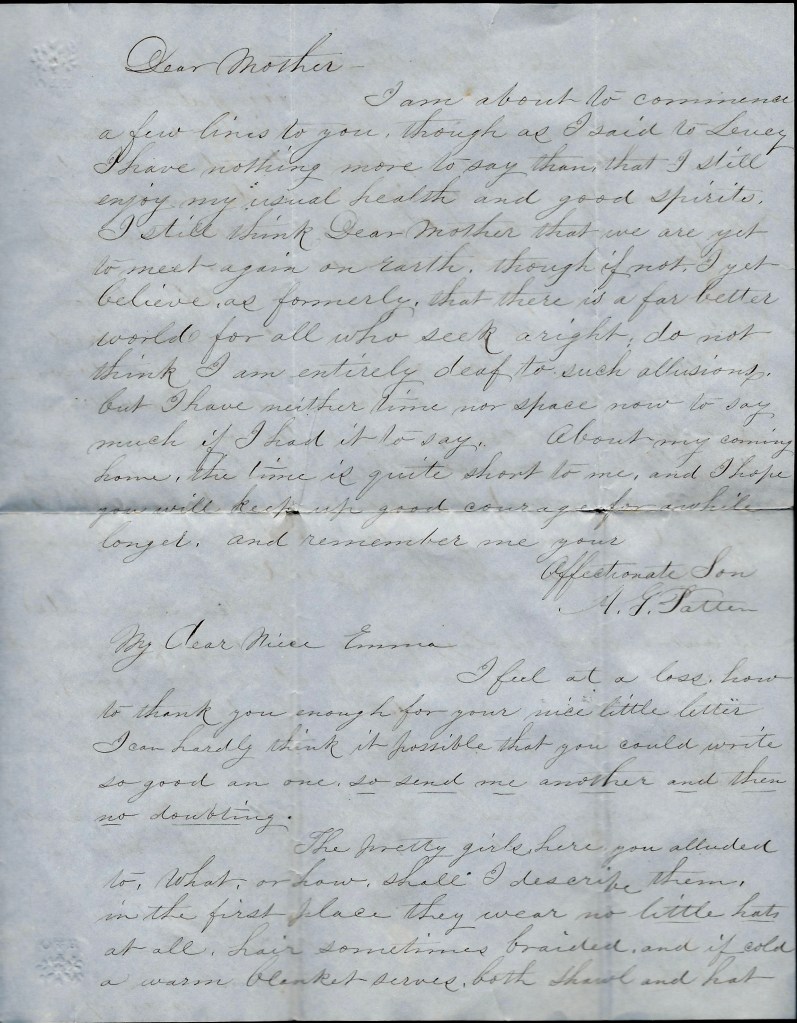 Dear Mother –
I am about to commence
a few lines to you, though as I said to Levey
I have nothing more to say than, that I still
enjoy my usual health and good spirits.
I still think Dear Mother that we are yet
to meet again on earth. though if not, I yet
believe, as formerly, that there is a far better
world for all who seek aright, do not
think I am entirely deaf to such allusions.
but I have neither time nor space now to say
much if I had it to say. About my coming
home, the time is quite short to me, and I hope
you will keep up good courage for awhile
longer. and remember me your
Affectionate Son
G. Patten
My Dear Niece Emma
I feel at a loss, how
to thank you enough for your nice little letter
I can hardly think it possible that you could write
so good an one, so send me another and then
no doubting.
The pretty girls, here you alluded
to, What, or how, shall I describe them,
in the first place they wear no little hats
at all, hair sometimes braided, and if cold
a warm blanket serves, both shawl and hat